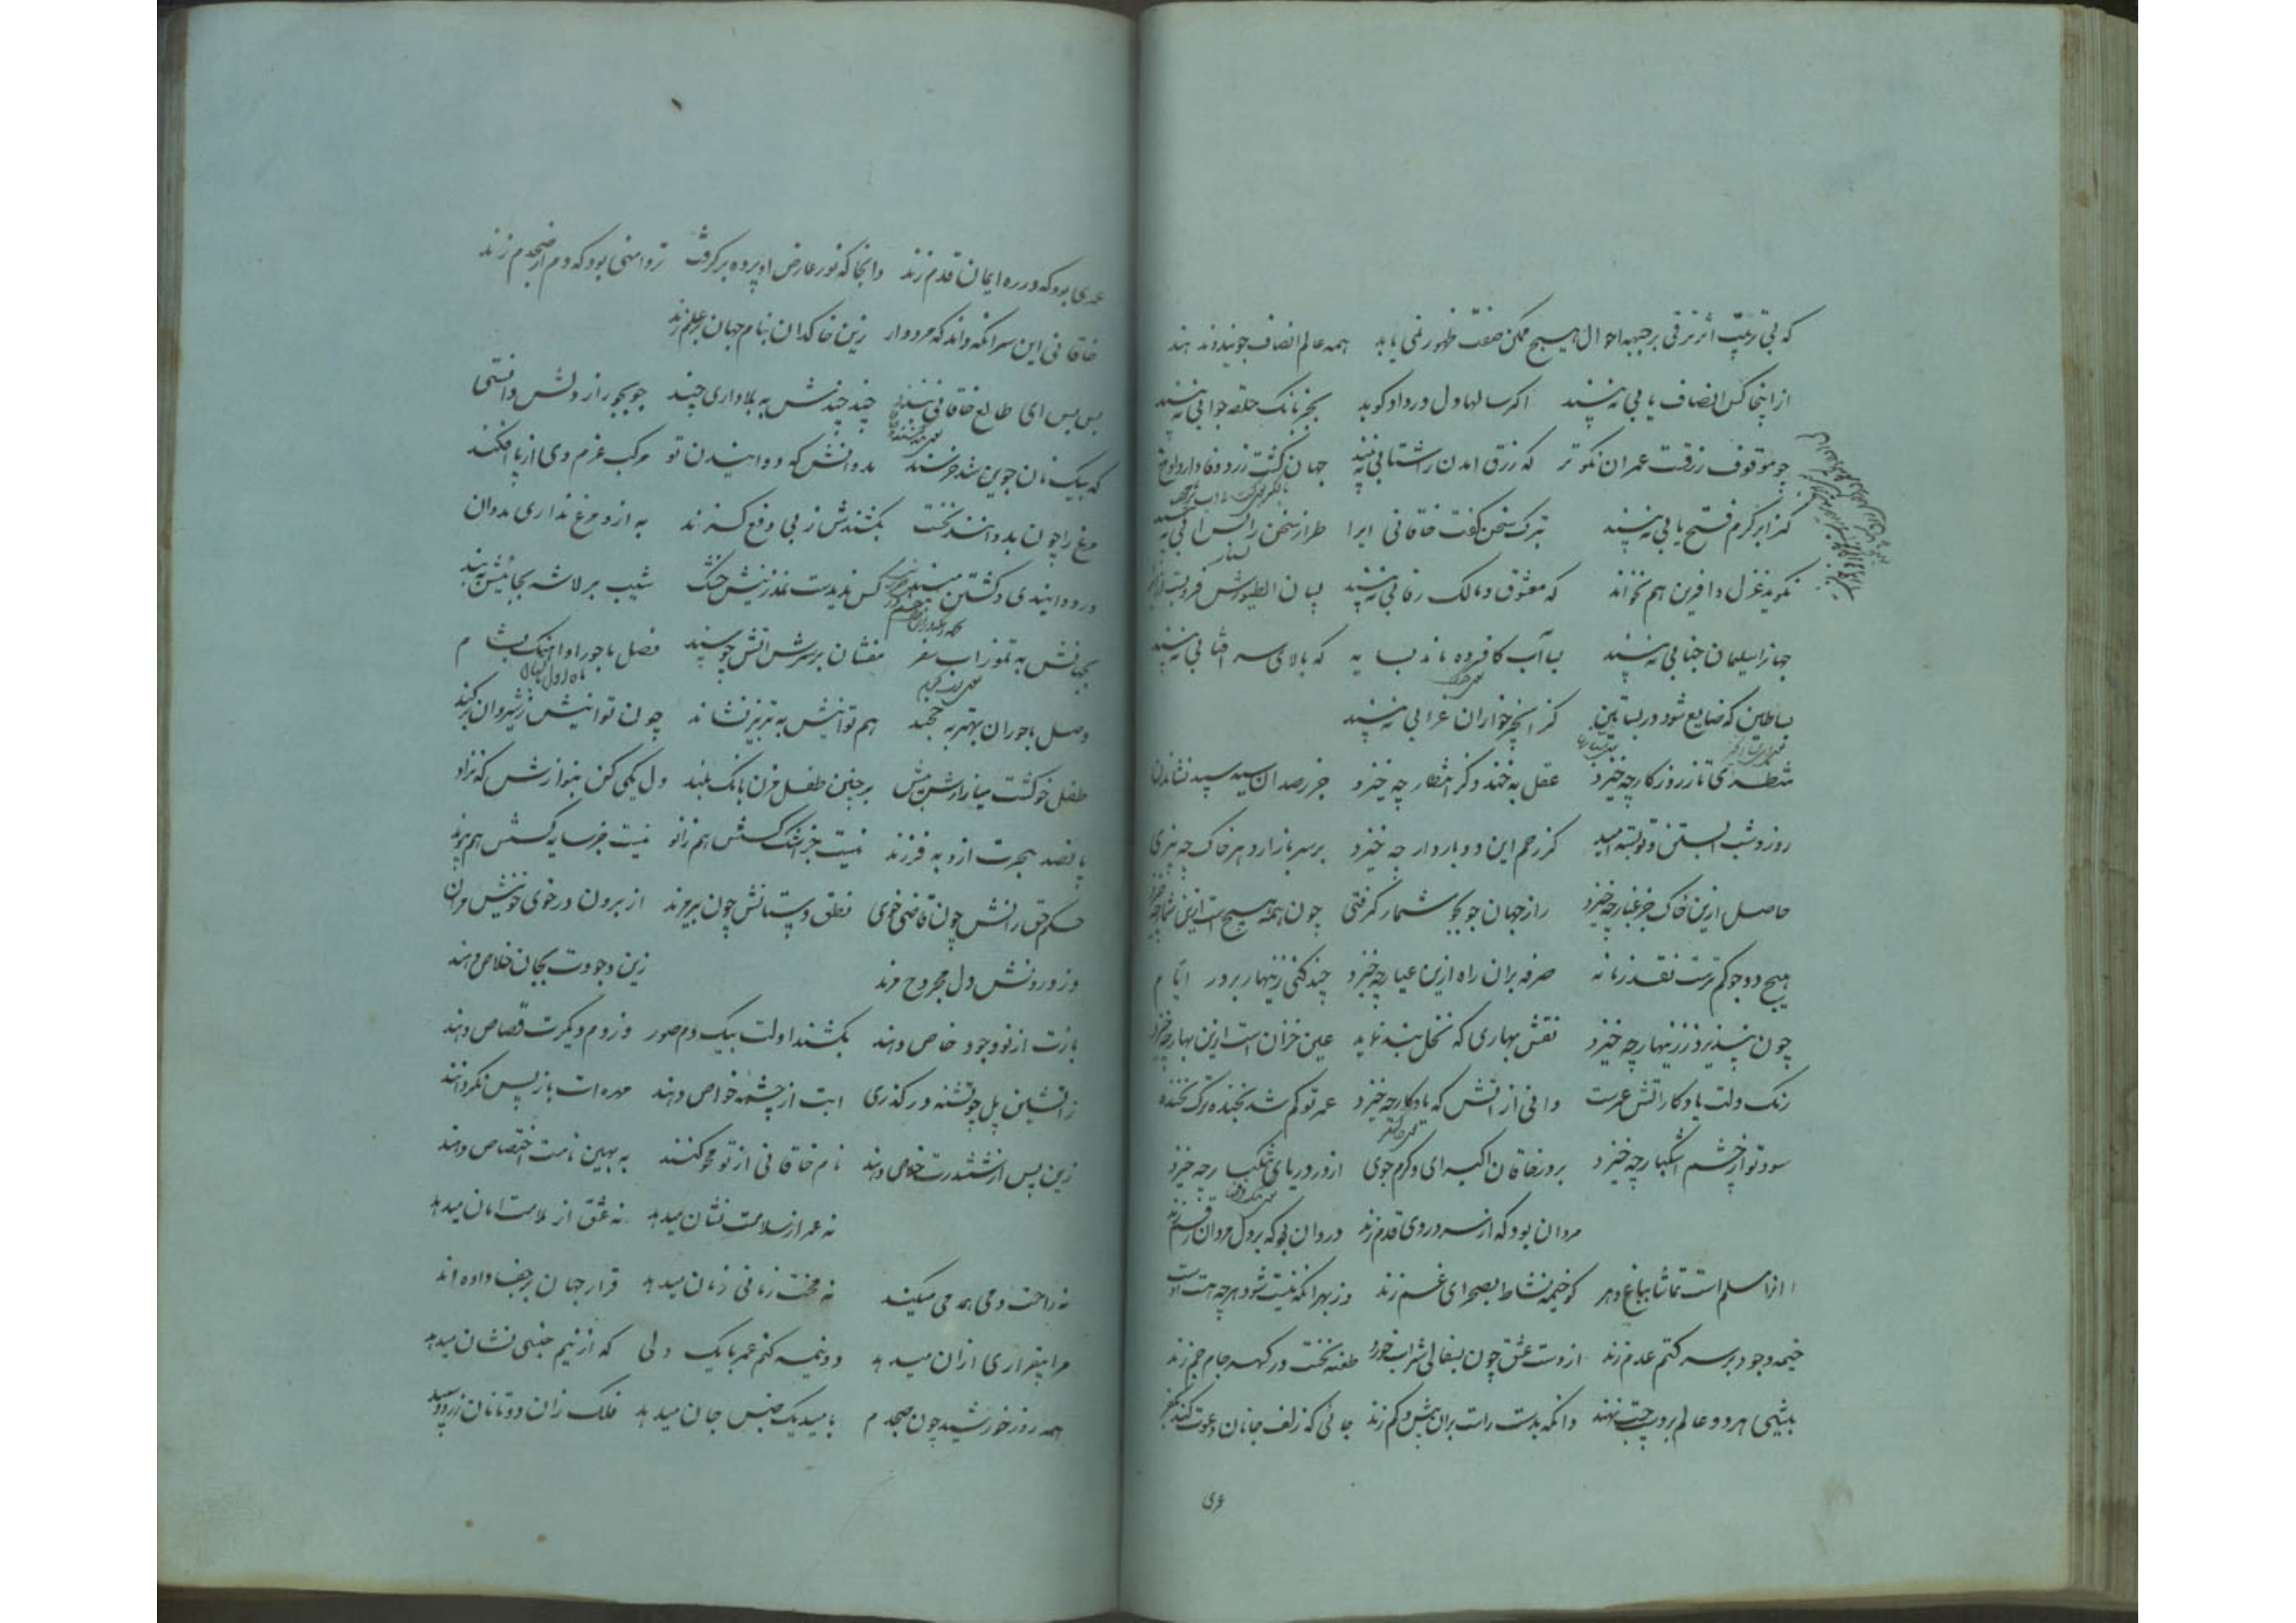 که بی‌رتبت اثر ترقی بر جبهه احوال هیچ ممکن صفت ظهور نمی یابد همه عالم انصاف جویند و ندهند
از اینجا کس انصاف یابی نه بیند اگر سالها دل در داد کوبد بجز بانک حلقه جوابی نه بیند
چو موقوف رزقت عمران نکوتر که رزق امدن را شتابی نه بیند جهان کشت زرد وفا دارد اوخ
کز ابر کرم فتح بابی نه بیند بترک سخن گفت خاقانی ایرا طراز سخن را بس ابی نه بیند
نگوید غزل و افرین هم نخواند که معشوق و مالک رقابی نه بیند لسان الطیورش فروبست ازیرا
جهانرا سلیمان جنابی نه بیند بیاب کافروده ماند بسایه که بالای سر افتابی نه بیند
بساطین که ضایع شود در بساتین کز انجیر خواران غرابی نه بیند
منتظری تا ز روزگار چه خیزد عقل بخندد کز انتظار چه خیزد جز رصدان سیه سپید نشاندن
روز و شب ابستن و تو بسته امید کز رحم این دو باردار چه خیزد بر سر بازار دهر خاک چه بیزی
حاصل ازین خاک جز غبار چه خیزد راز جهان جو بجو شمار گرفتی چون همه هیچ است ازین شمار چه خیزد
هیچ دو جو کم ترست نقد زمانه صرفه بران راه ازین عیار چه خیزد چند کنی زینهار بر در ایام
چون نپذیرد ز زینهار چه خیزد نقش بهاری که نخل بند نماید عین خزان است ازین بهار چه خیزد
رنک ولت یادکار اتش عمرست دانی از اتش که یادکار چه خیزد عمر تو کم شد بخنده ترک بخنده
سود تو از چشم اشکبار چه خیزد بر در خاقان اکبر ای و کرم جوی از در دریای تنکبار چه خیزد
مردان بود که از سر دردی قدم زند درد ان بود که بر دل مردان رقم زند
انرا مسلم است تماشا بباغ دهر کو خیمه نشاط بصحرای غم زند وز بهر انکه نیست شود هرچه هست اوست
خیمه وجود بر سر کتم عدم زند از دست عشق چون بسفالی شراب خورد طعنه نخست در گهر جام جم زند
بیشی هر دو عالم بر دست چپ نهند وانکه بدست راست بران بیش و کم زند جائی که زلف جانان دعوت کند بکفر
عری
عدی بود که در ره ایمان قدم زند وانجا که نور عارض او پرده برگرفت تردامنی بود که دم از صبحدم زند
خاقانی این سر انکه داند که مردوار زین خاکدان بنام جهان بر علم زند
بس بس ای طالع خاقانی بند چند چندش به بلاداری چند جو بجو راز دلش دانستی
که بیک نان جوین شد خرسند بدوانش که دوانیدن تو مرکب عزم وی از پا افکند
مرغ را چون بدوانند نخست بکشندش ز پی دفع گزند به ازو مرغ نداری مدوان
ور دوانیدی کشتن مپسند کس ندیدست نمد زینش خشک شیب بر لاشه بجائیش نبند
بجهانش به تموز اب سفر مفشان بر سرش اتش چو سپند فصل با حور او اهنک بشام
وصل با حوران بهتر به خجند هم توانیش به تبریز نشاند چون توانیش ز شیروان برکند
طفل خو گشت میازارش بیش بر چنین طفل مزن بانک بلند دل کمی کن بنوازش که نزاد
پانصد هجرت ازو به فرزند نیست جز اشک کسش هم زانو نیست جز سایه کسش هم پیوند
حکم حق رانش چون قاضی خوی نطق دستانش چون پیر مرند از برون در خوی خونیش مران
وز درونش دل مجروح مرند زین وجودت بجان خلاص دهند
بازت از نو وجود خاص دهند بکشند اولت بیک دم صور وز دم دیکرت قصاص دهند
زاتشین پل چو تشنه در گذری ابت از چشمه خواص دهند مهره ات باز پس نگردانند
زین پس از ششدرت خلاص دهند نام خاقانی از تو محو کنند به بهین نامت اختصاص دهند
نه عمر از سلامت نشان میدهد نه عشق از ملامت امان میدهد
نه راحت دمی همدمی میکند نه محنت زمانی زمان میدهد قرار جهان بر جفا داده اند
مرا بیقراری ازان میدهد دو نیمه کنم عمر با یک دلی که از نیم جنسی نشان میدهد
همه روز خورشید چون صبحدم بامید یک جنس جان میدهد فلک زان دو تا نان زرد و سپید